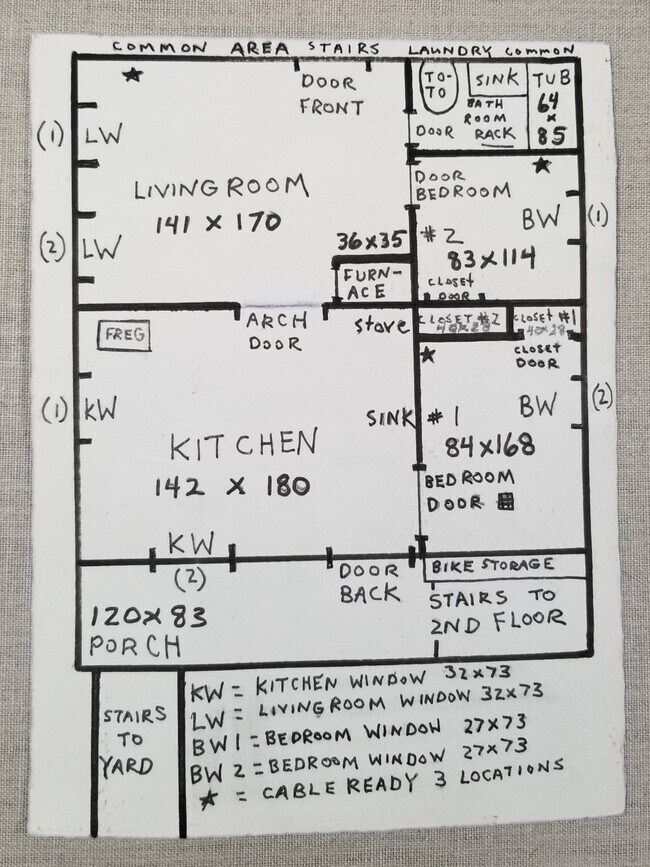 COMMON AREA STAIRS LAUNDRY COMMON
DOOR
FRONT
TO-
TO
SINK
TUB
64
x
85
BATH
ROOM
RACK
DOOR
(1) LW
LIVINGROOM
141 x 170
(2) LW
36x35
FURN-
ACE
DOOR
BEDROOM
BW (1)
#2
83x114
CLOSET
DOOR
CLOSET #2
40x28
CLOSET #1
40x28
CLOSET
DOOR
FREG
ARCH
DOOR
stove
(1) KW
SINK
KITCHEN
142 x 180
#1
BW (2)
84x168
BEDROOM
DOOR
KW
(2)
DOOR
BACK
BIKE STORAGE
STAIRS TO
2ND FLOOR
120x83
PORCH
STAIRS
TO
YARD
KW = KITCHEN WINDOW 32x73
LW = LIVINGROOM WINDOW 32x73
BW1 = BEDROOM WINDOW 27x73
BW2 = BEDROOM WINDOW 27x73
★ = CABLE READY 3 LOCATIONS